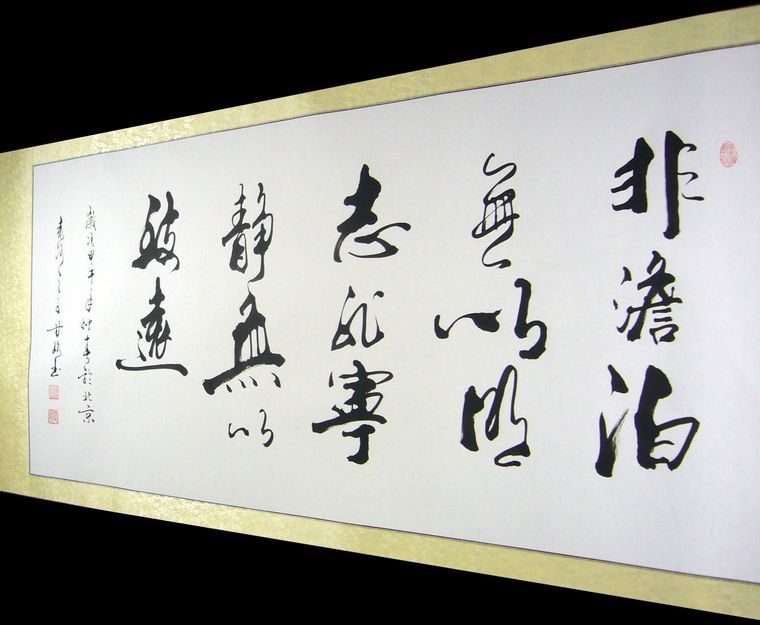 非澹泊
無以明
志非寧
靜無以
致遠
歲次甲午年仲春於北京